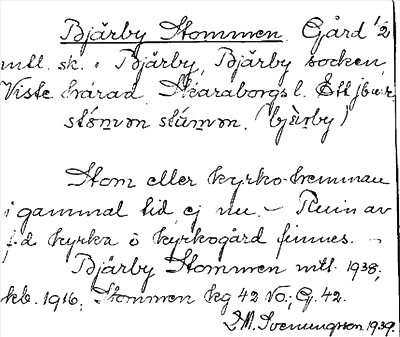 Bjärby Stommen. Gård 1/2
mtl. sk. i Bjärby, Bjärby socken,
Viste härad. Skaraborgs l. Ett jbr.
stómən stámən. (bjèrby)
Stom eller kyrko-hemman
i gammal tid, ej nu. – Ruin av
f.d. kyrka o kyrkogård finnes. –
Bjärby Stommen mtl. 1938;
kb. 1916; Stommen hg 42 No.; G. 42.
D.M. Svenungsson 1939.